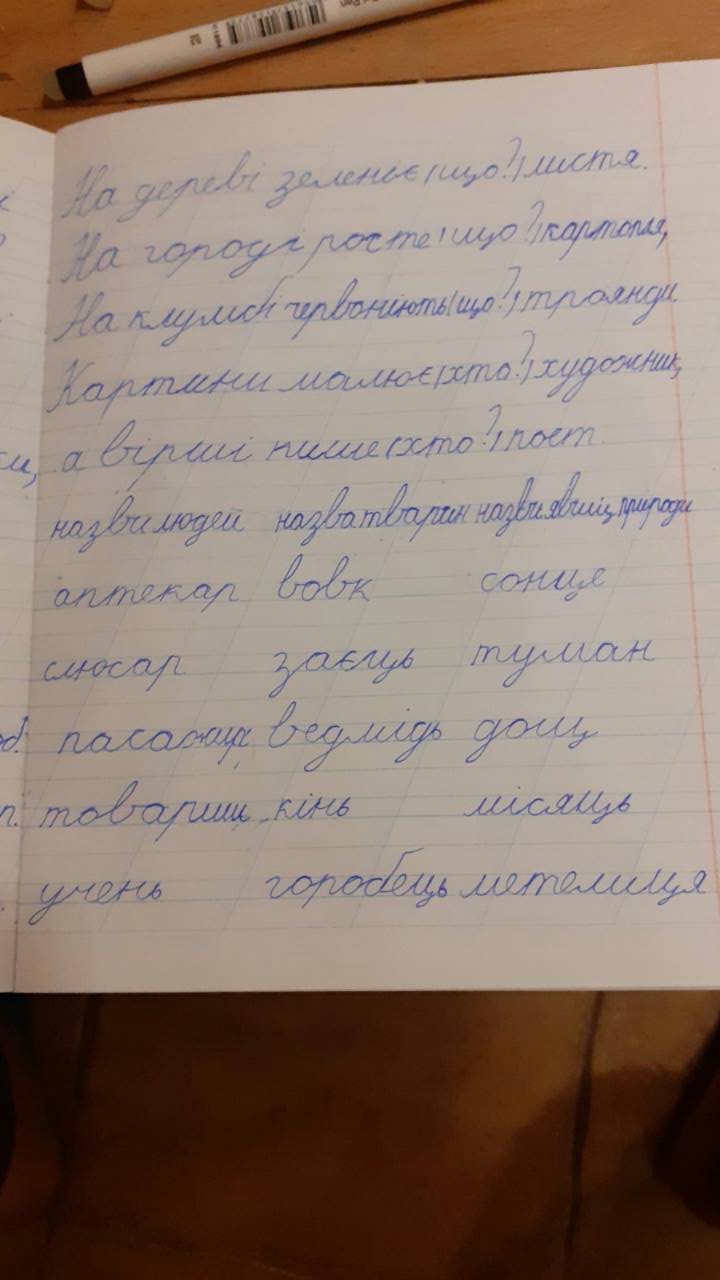 На дереві зеленіє (що?) листя.
На городі росте (що?) картопля,
На клумбі червоніють (що?) троянди.
Картини малює (хто?) художник,
а вірші пише (хто?) поет.
назви людей назва тварин назви явищ природи
аптекар вовк сонце
слюсар заєць туман
пасажир ведмідь дощ
товариш кінь місяць
учень горобець метелиця